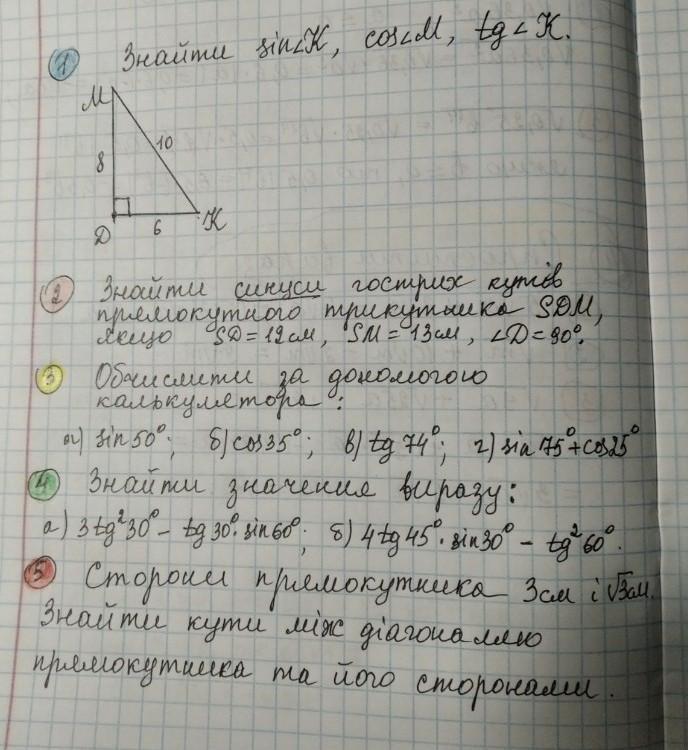 1 Знайти sin∠K, cos∠M, tg∠K.
M
8
10
D
6
K
2 Знайти синуси гострих кутів
прямокутного трикутника SDM,
якщо SD=12см, SM=13см, ∠D=90°.
3 Обчислити за допомогою
калькулятора:
а) sin50°; б) cos35°; в) tg74°; г) sin75°+cos25°
4 Знайти значення виразу:
а) 3tg²30° - tg30°·sin60°; б) 4tg45°·sin30° - tg²60°.
5 Сторони прямокутника 3см і √3см.
Знайти кути між діагоналлю
прямокутника та його сторонами.